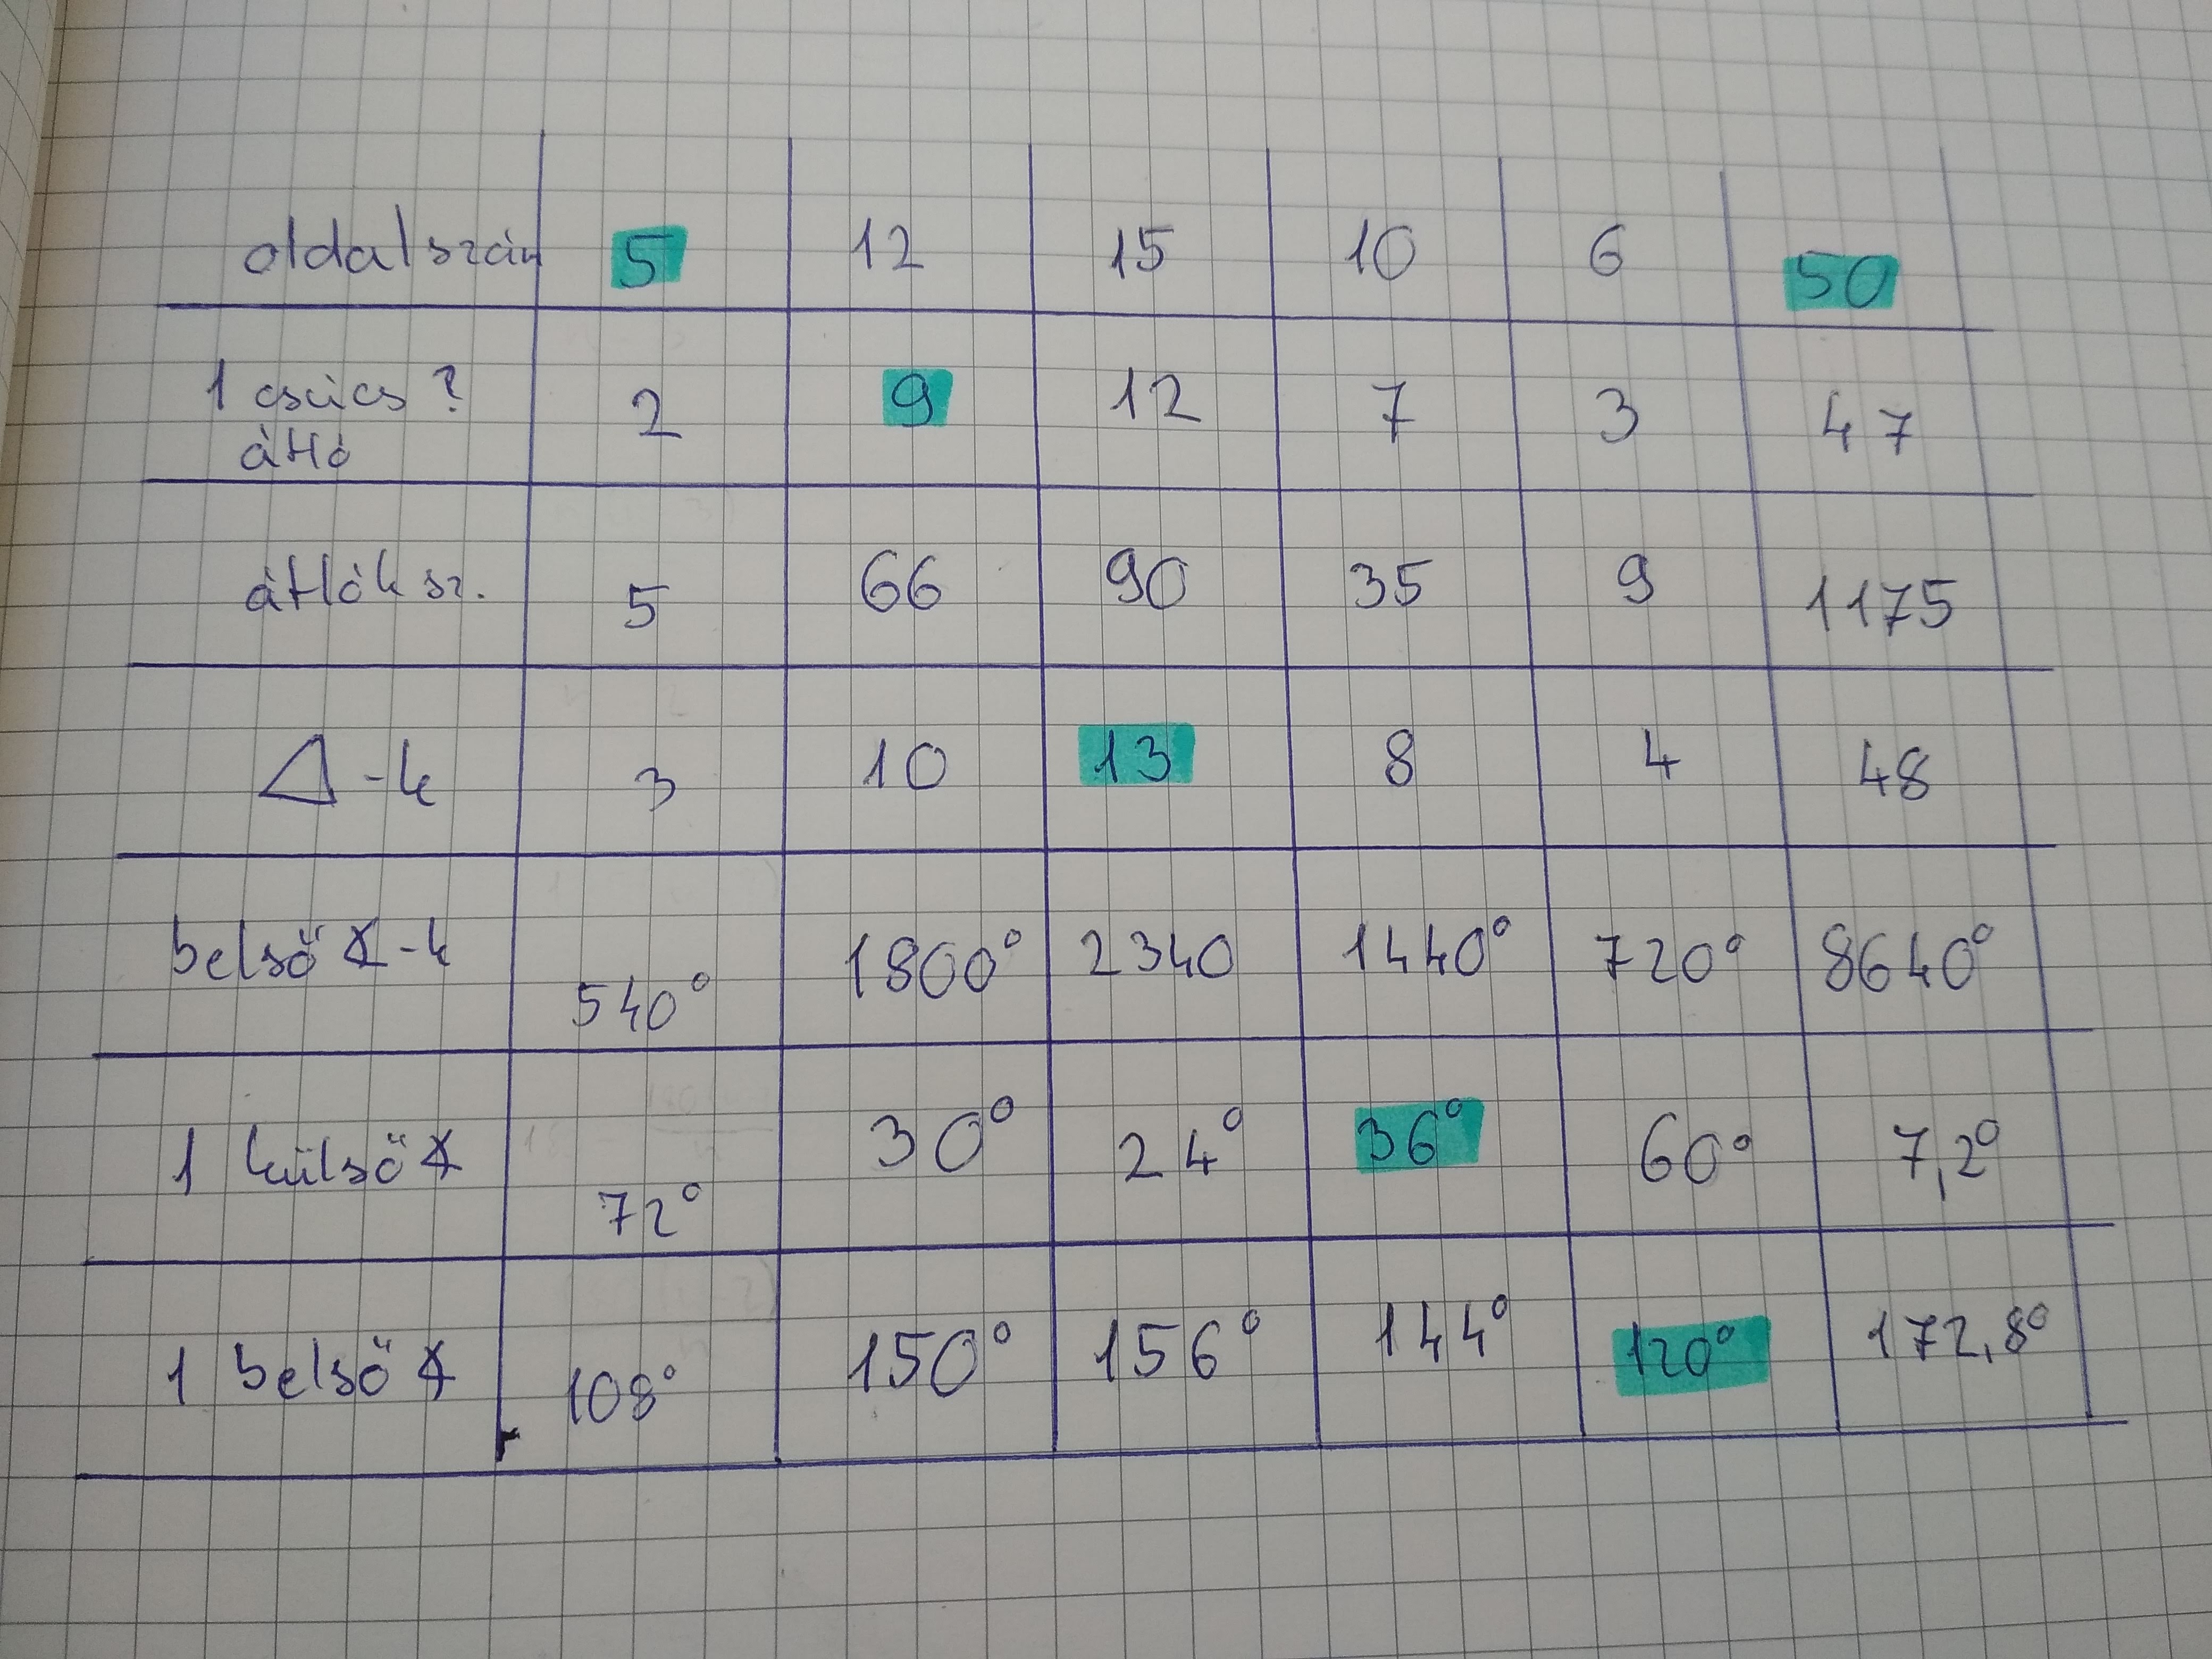 oldalszám 5 12 15 10 6 50
1 csúcs ? 2 9 12 7 3 47
átló
átlók sz. 5 66 90 35 9 1175
Δ-k 3 10 13 8 4 48
belső ∢-k 540° 1800° 2340 1440° 720° 8640°
1 külső ∢ 72° 30° 24° 36° 60° 7,2°
1 belső ∢ 108° 150° 156° 144° 120° 172,8°